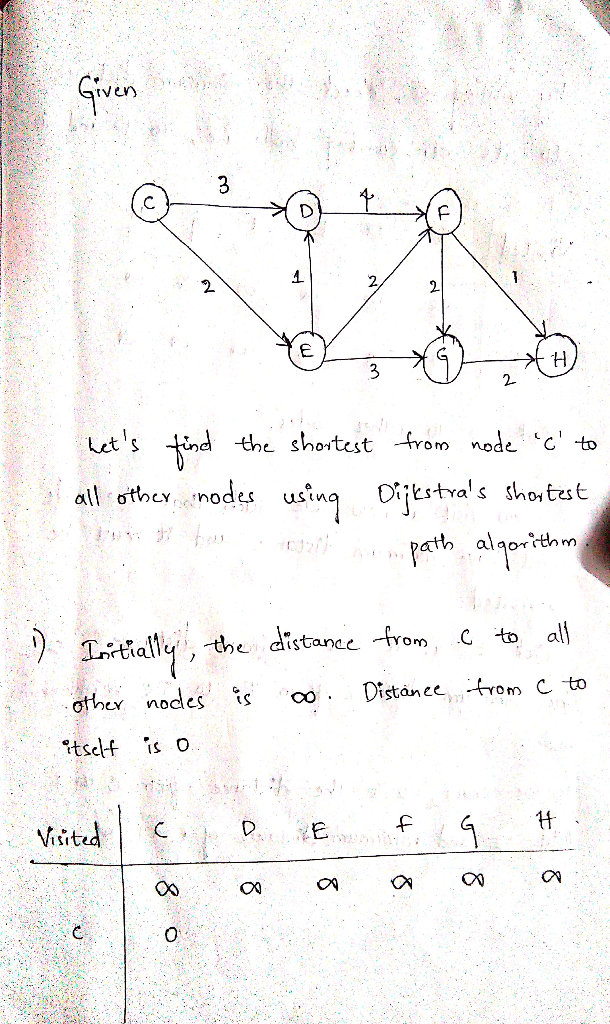 Given
3
C
D
4
F
2
1
2
2
1
E
3
G
2
H
Let's find the shortest from node 'c' to
all other nodes using Dijkstra's shortest
path algorithm.
i) Initially, the distance from C to all
other nodes is ∞. Distance from C to
itself is 0.
Visited C D E F G H
∞ ∞ ∞ ∞ ∞ ∞
C 0